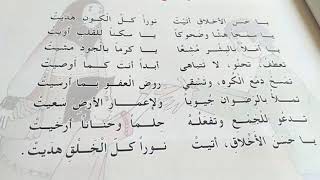 يا حسن الأخلاق أتيتْ نوراً كلَّ الكون هديتْ
يا سكناً للقلب أويتْ
يا أملاً بالبشر مشعّا يا كرماً بالجود مشيتْ
تعطف تحنو، لا تتباهى أبداً أنت كما أوصيتْ
تمسح دمع الكُره، وتسقي روض العفو بما أرسيتْ
تملأ بالرضوان جُيوبا ولإعمار الأرض سعيتْ
تدعو للجمع وتفعلُهُ حلماً وحناناً أرخيتْ
يا حسن الأخلاق، أتيتْ نوراً كلَّ الخلق هديتْ.